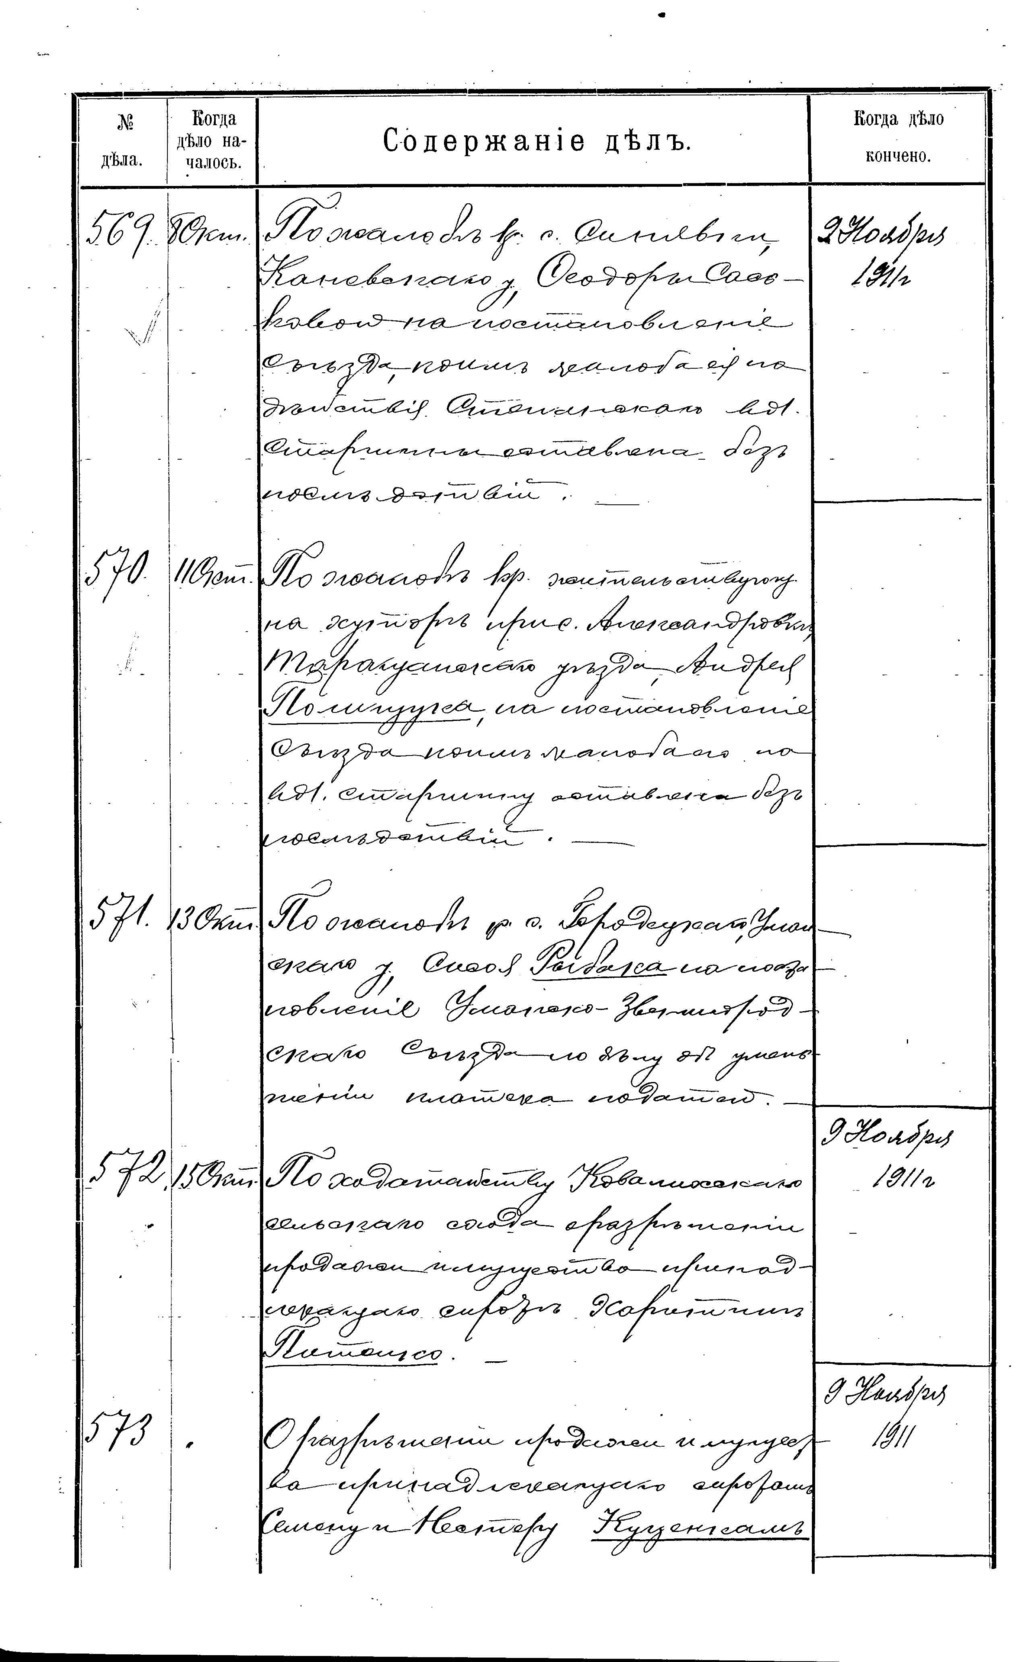 № дѣла.
Когда дѣло началось.
Содержаніе дѣлъ.
Когда дѣло кончено.
569. 8 Окт. По жалобѣ кр. с. Синявки, 2 Ноября
Каневскаго у, Ѳеодоры Сасо- 1911 г
ковой на постановленіе
Съѣзда, коимъ жалоба ея на
дѣйствія Степанскаго вол.
Старшины оставлена безъ
послѣдствій.
570. 11 Окт. По жалобѣ кр. жительствующ.
на хуторѣ при с. Александровка,
Таращанскаго уѣзда, Андрея
Полищука, на постановленіе
Съѣзда коимъ жалоба его на
вол. старшину оставлена безъ
послѣдствій.
571. 13 Окт. По жалобѣ кр. с. Городецкаго, Уман-
скаго у, Сысоя Рыбака на поста
новленіе Уманско-Звенигород-
скаго Съѣзда по дѣлу объ умень
шеніи платежа податей.
9 Ноября
572. 15 Окт. По ходатайству Ковалихскаго 1911 г
сельскаго схода о разрѣшеніи
продажи имущества принад-
лежащаго сиротѣ
Потапенко.
9 Ноября
573 О разрѣшеніи продажи имущест 1911
ва принадлежащаго сиротамъ
Семену и Нестеру Куценкамъ